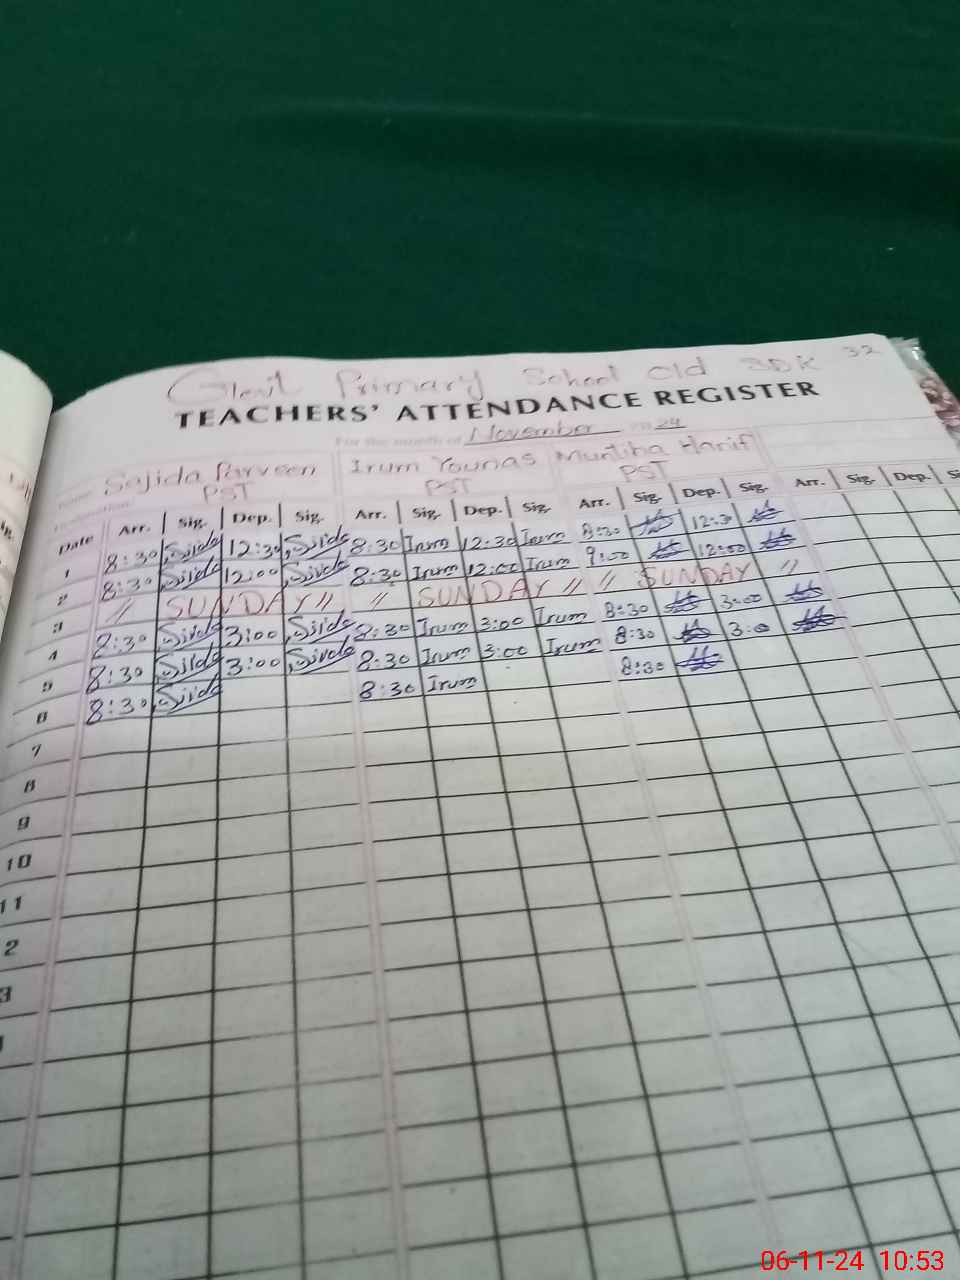 Primary School Old SDK 32
TEACHERS' ATTENDANCE REGISTER
For the month of November 2024
Sajida Parveen Irum Younas Muntiha Hanif
PST PST PST
Date Arr. Sig. Dep. Sig. Arr. Sig. Dep. Sig. Arr. Sig. Dep. Sig. Arr. Sig. Dep.
1 8:30 12:30 8:30 Irum 12:30 Irum 8:30 12:30
2 8:30 12:00 8:30 Irum 12:00 Irum 12:00
3 // SUNDAY // // SUNDAY // // SUNDAY //
4 8:30 3:00 8:30 Irum 3:00 Irum 8:30 3:00
5 8:30 3:00 8:30 Irum 3:00 Irum 8:30 3:00
6 8:30 8:30 Irum 8:30
7
8
9
10
11
2
3
06-11-24 10:53